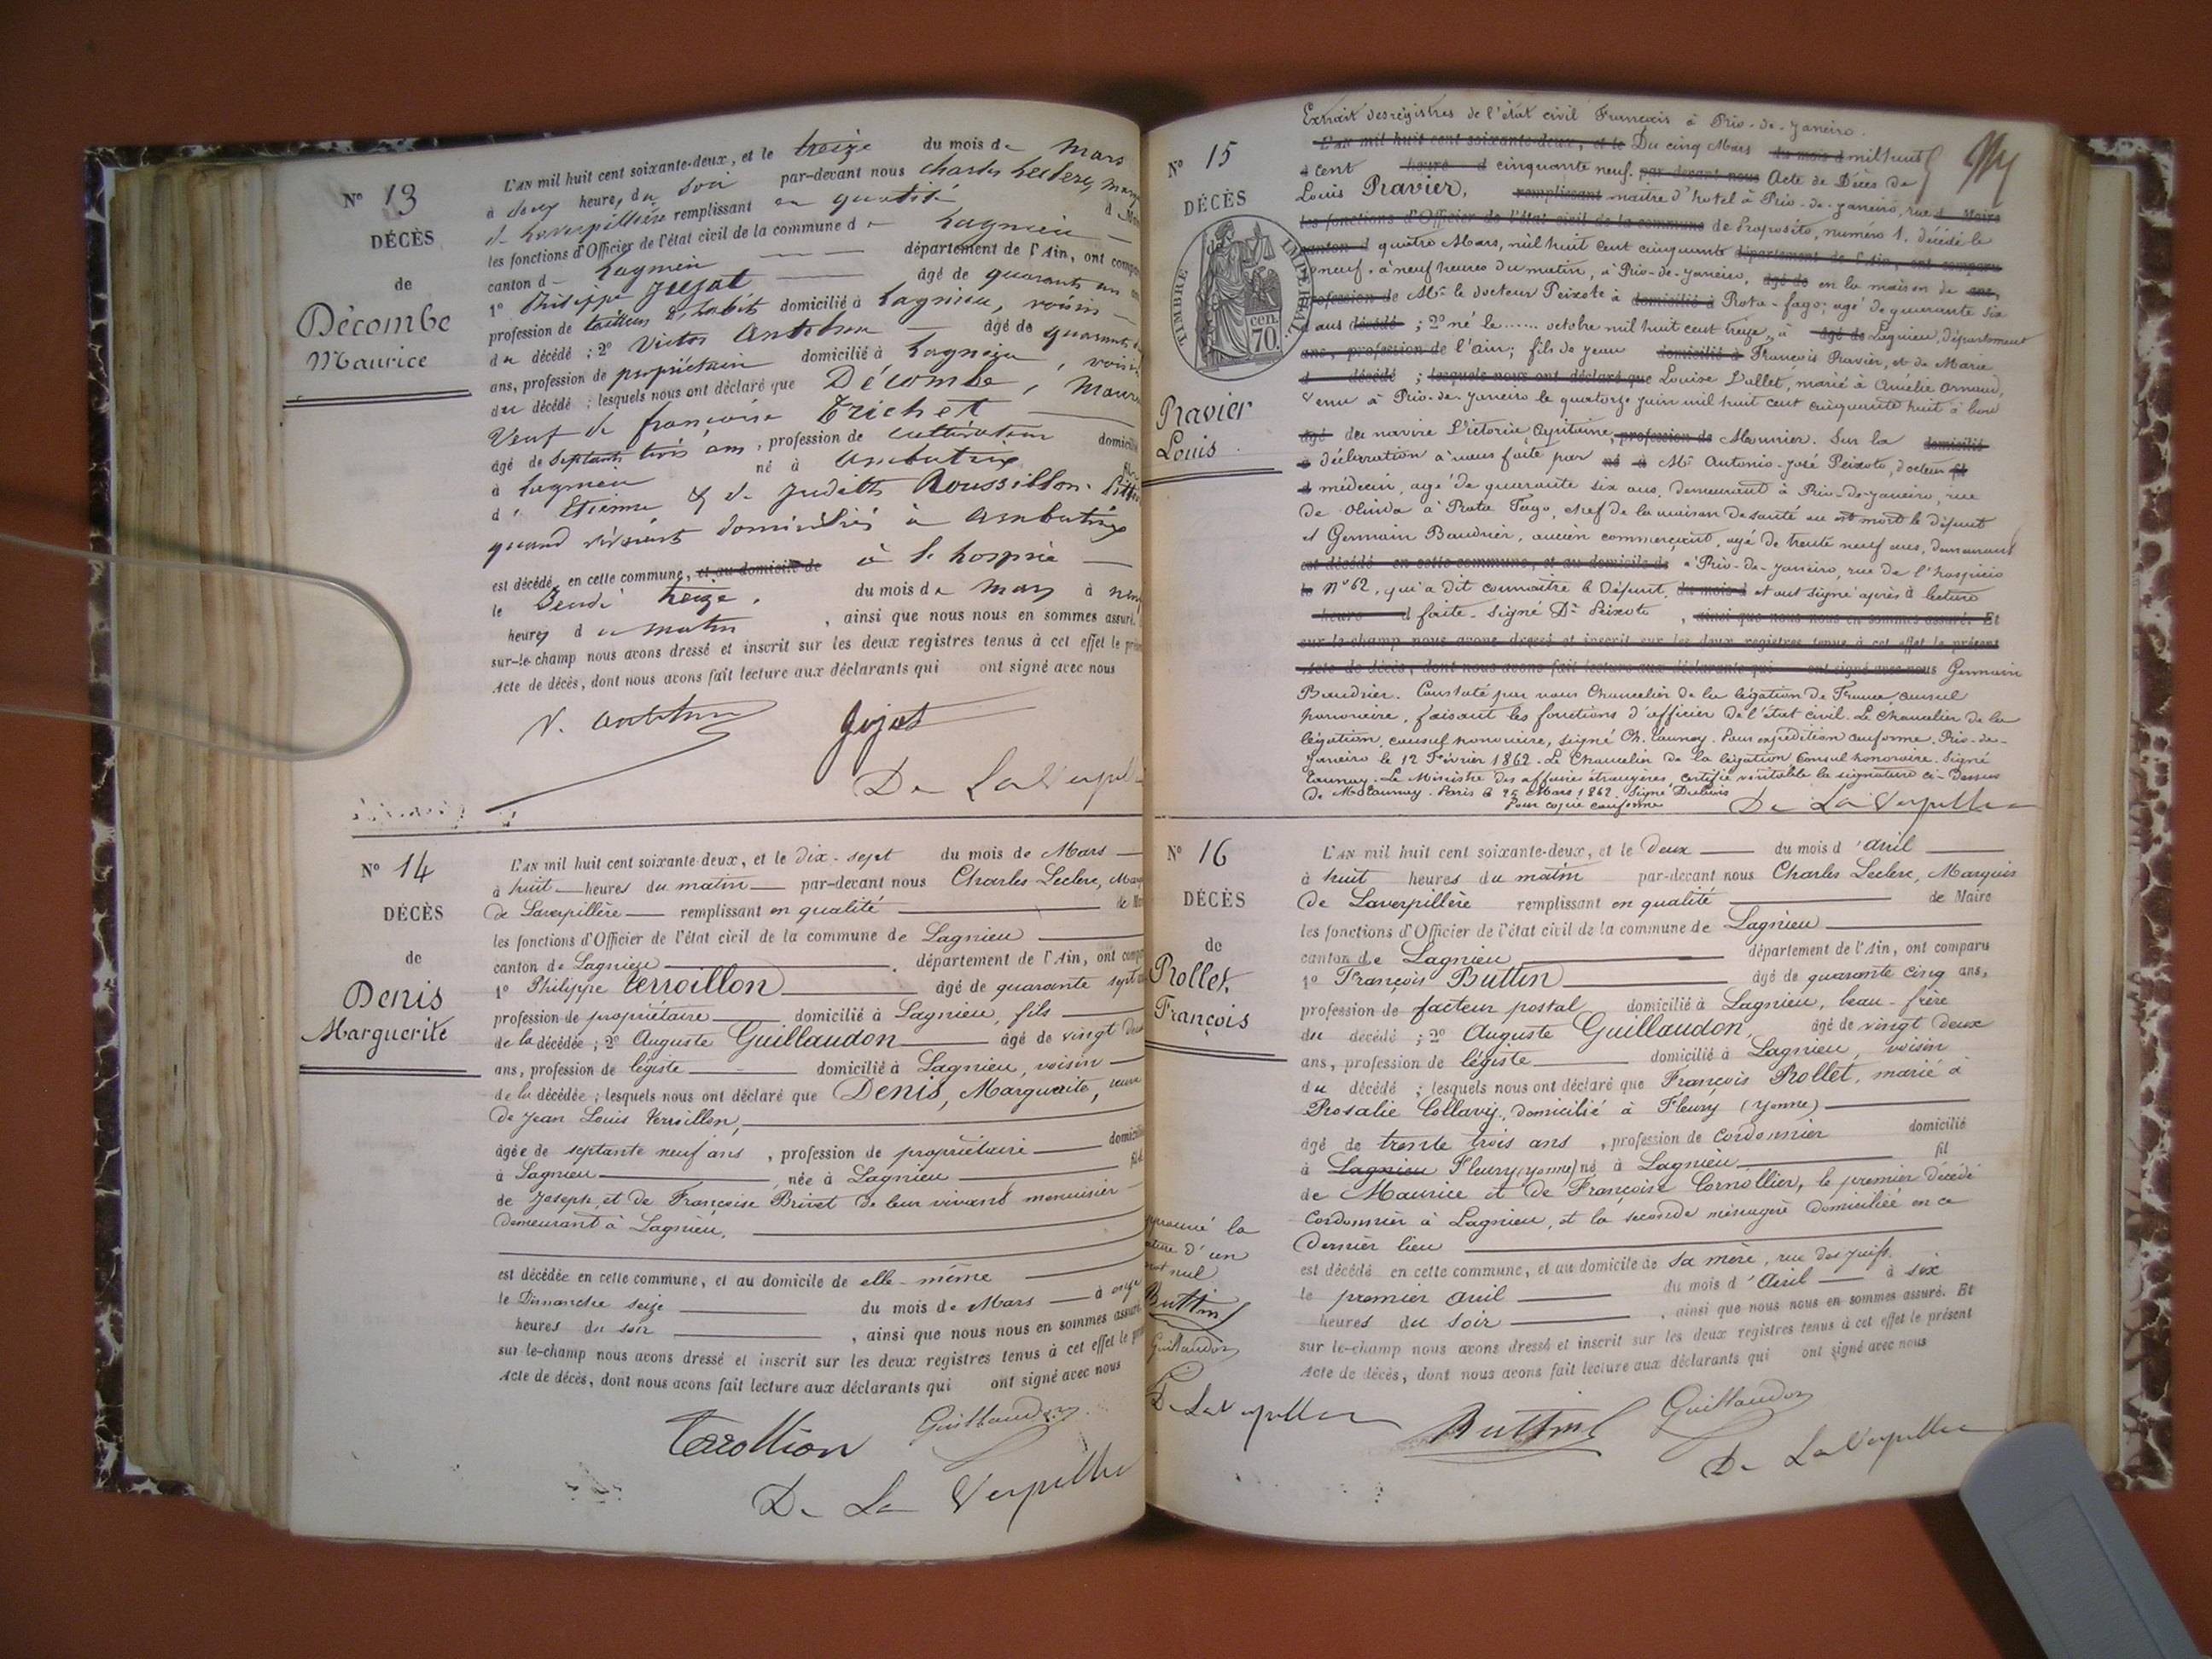 N° 13
DÉCÈS
de
Décombe
Maurice
L'AN mil huit cent soixante-deux, et le treize du mois de Mars
à deux heures du soir par-devant nous Charles Leclerc, Marq
de Laverpillière remplissant en qualité d Mai
les fonctions d'Officier de l'état civil de la commune de Lagnieu
canton de Lagnieu département de l'Ain, ont compa
1° Philippe Jujat âgé de quarante un
profession de tailleur d'habits domicilié à Lagnieu, voisin
du décédé ; 2° Victor âgé de quarante
ans, profession de propriétaire domicilié à Lagnieu, voisin
du décédé ; lesquels nous ont déclaré que Décombe, Maur
Veuf de françoise Trichet
âgé de septante trois ans, profession de cultivateur domicilié
à Lagnieu né à Ambutrix fils
d'Etienne & de Judith Roussillon
quand vivaient domiciliés à Ambutrix
est décédé en cette commune, et au domicile de à l'hospice
le Jeudi treize du mois de Mars à neuf
heures du matin, ainsi que nous nous en sommes assuré.
sur-le-champ nous avons dressé et inscrit sur les deux registres tenus à cet effet le prése
Acte de décès, dont nous avons fait lecture aux déclarants qui ont signé avec nous
Jujat
De La Verpill
N° 14
DÉCÈS
de
Denis
Marguerite
L'AN mil huit cent soixante-deux, et le dix-sept du mois de Mars
à huit heures du matin par-devant nous Charles Leclerc, Mar
de Laverpillère remplissant en qualité de Ma
les fonctions d'Officier de l'état civil de la commune de Lagnieu
canton de Lagnieu département de l'Ain, ont compa
1° Philippe Verroillon âgé de quarante sept
profession de propriétaire domicilié à Lagnieu, fils
de la décédée ; 2° Auguste Guillaudon âgé de vingt deux
ans, profession de légiste domicilié à Lagnieu, voisin
de la décédée ; lesquels nous ont déclaré que Denis, Marguerite, veuve
de Jean Louis Verroillon,
âgée de septante neuf ans, profession de propriétaire domicilié
à Lagnieu, née à Lagnieu fil
de Joseph, et de Françoise Brivet de leur vivant menuisier
demeurant à Lagnieu.
est décédée en cette commune, et au domicile de elle-même
le Dimanche seize du mois de Mars à onze
heures du soir, ainsi que nous nous en sommes assuré.
sur-le-champ nous avons dressé et inscrit sur les deux registres tenus à cet effet le pré
Acte de décès, dont nous avons fait lecture aux déclarants qui ont signé avec nous
Guillaudon
De La Verpillie
N° 15
DÉCÈS
de
TIMBRE IMPERIAL
70 cen.
Ravier
Louis
Extrait des registres de l'état civil Français à Rio-de-Janeiro.
L'AN mil huit cent soixante-deux, et le Du cinq Mars du mois d mil huit
à cent heure d cinquante neuf. par-devant nous Acte de Décès de
Louis Ravier, remplissant maître d'hotel à Rio-de-Janeiro, rue d Maire
les fonctions d'Officier de l'état civil de la commune de Proposito, numéro 1. décédé le
canton d quatre Mars, mil huit cent cinquante département de l'Ain, ont comparu
neuf. à neuf heures du matin, à Rio-de-Janeiro, âgé de en la maison de ans,
profession de Mr le docteur Peixote à domicilié à Bota-fogo; agé de quarante six
ans décédé ; 2° né le...... octobre mil huit cent treize, à âgé de Lagnieu, département
ans, profession de l'ain; fils de Jean domicilié à François Ravier, et de Marie
d décédé ; lesquels nous ont déclaré que Louise Vallet, marié à Amélie Arnaud,
Venu à Rio-de-Janeiro le quatorze juin mil huit cent cinquante huit à bord
âgé du navire Victoria, Capitaine, profession de Mounier. Sur la domicilié
à déclaration à nous faite par né à Mr Antonio-José Peixoto, docteur fil
d médecin, agé de quarante six ans, demeurant à Rio-de-Janeiro, rue
de Olinda à Bota Fogo, chef de la maison de santé ou est mort le défunt
et Germain Baudrier, ancien commerçant, agé de trente neuf ans, demeurant
est décédé en cette commune, et au domicile de à Rio-de-Janeiro, rue de l'hospicio
le n° 62, qui a dit connaître le défunt, du mois d et ont signé après à lecture
heure d faite. Signé Dr Peixoto, ainsi que nous nous en sommes assuré. Et
sur-le-champ nous avons dressé et inscrit sur les deux registres tenus à cet effet le présent
Acte de décès, dont nous avons fait lecture aux déclarants qui ont signé avec nous Germain
Baudrier. Constaté par nous Chancelier de la légation de France, consul
honoraire, faisant les fonctions d'officier de l'état civil. Le Chancelier de la
légation, consul honoraire, signé Ch. Taunay. Pour expédition conforme. Rio-de-
Janeiro le 12 Février 1862. Le Chancelier de la légation Consul honoraire. Signé
Taunay. Le Ministre des affaires étrangères, certifie véritable la signature ci-dessus
de Mr Taunay. Paris le 25 Mars 1862. Signé Dubois
Pour copie conforme De La Verpilliere
N° 16
DÉCÈS
de
Rollet,
François
L'AN mil huit cent soixante-deux, et le Deux du mois d'avril
à huit heures du matin par-devant nous Charles Leclerc, Marquis
de Laverpillère remplissant en qualité de Maire
les fonctions d'Officier de l'état civil de la commune de Lagnieu
canton de Lagnieu département de l'Ain, ont comparu
1° François Buttin âgé de quarante cinq ans,
profession de facteur postal domicilié à Lagnieu, beau-frère
du décédé ; 2° Auguste Guillaudon, âgé de vingt deux
ans, profession de légiste domicilié à Lagnieu, voisin
du décédé ; lesquels nous ont déclaré que François Rollet, marié à
Rosalie Collavy, domicilié à Fleury (Yonne)
âgé de trente trois ans, profession de cordonnier domicilié
à Lagnieu Fleury (yonne) né à Lagnieu fil
de Maurice et de Françoise Cornollier, le premier décédé
cordonnier à Lagnieu, et la seconde ménagère domiciliée en ce
dernier lieu
est décédé en cette commune, et au domicile de sa mère, rue des Juifs.
le premier avril du mois d'avril à six
heures du soir, ainsi que nous nous en sommes assuré. Et
sur-le-champ nous avons dressé et inscrit sur les deux registres tenus à cet effet le présent
Acte de décès, dont nous avons fait lecture aux déclarants qui ont signé avec nous
prouvé la
ature d'un
mot nul
Buttin
Guillaudon
De La Verpilliere
Buttin
Guillaudon
De La Verpilliere